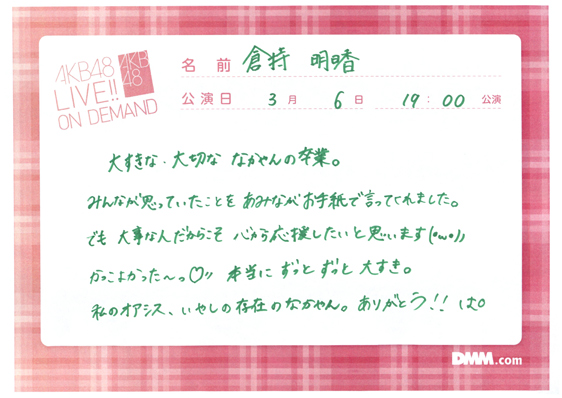 AKB48
LIVE!!
ON DEMAND
AKB
48
名 前 倉持 明日香
公演日 3月 6日 19:00 公演
大すきな・大切な なかやんの卒業。
みんなが思っていたことを あみながお手紙で言ってくれました。
でも 大事なんだからこそ 心から応援したいと思います(・ω・))
かっこよかった〜っ♡!! 本当に ずっと ずっと 大すき。
私のオアシス、いやしの存在のなかやん。ありがとう!!
DMM.com